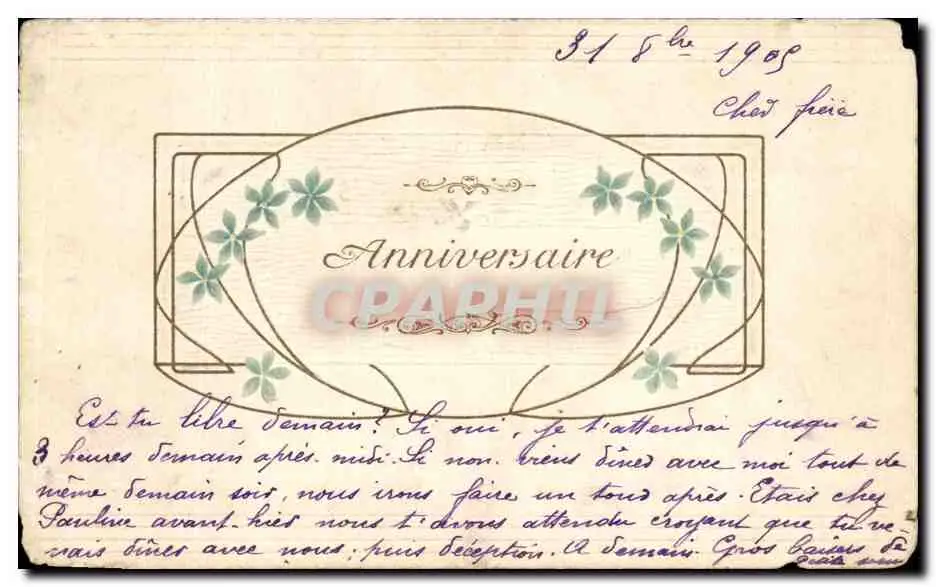 31 8bre 1905
Cher frère
Anniversaire
CPAPHIL
Es-tu libre demain? Si oui, je t'attendrai jusqu'à
3 heures demain après-midi. Si non viens dîner avec moi tout de
même demain soir, nous irons faire un tour après. Étais chez
Pauline avant-hier nous t'avons attendu croyant que tu ve-
nais dîner avec nous; puis déception. A demain. Gros baisers de